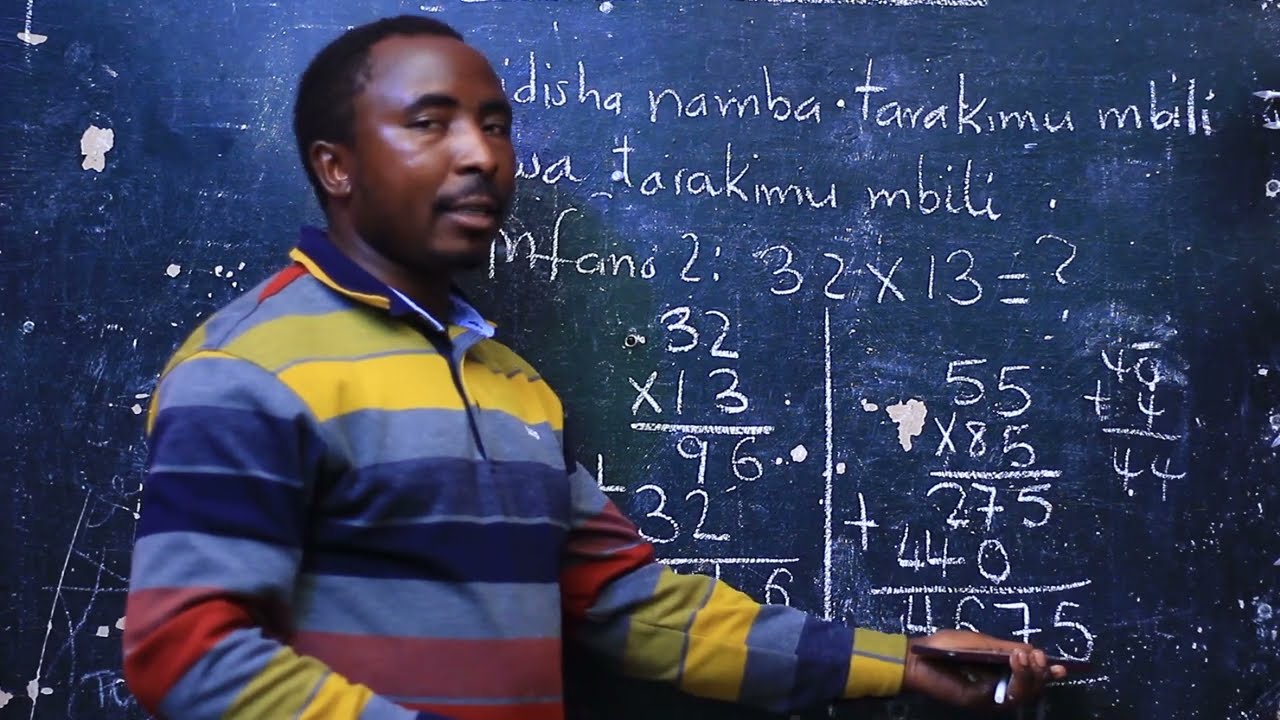 idisha namba tarakimu mbili
wa tarakimu mbili
mfano 2: 32 x 13 = ?
32
x 13
96
+
32
6
55
x 85
275
+
440
4675
40
+ 4
44